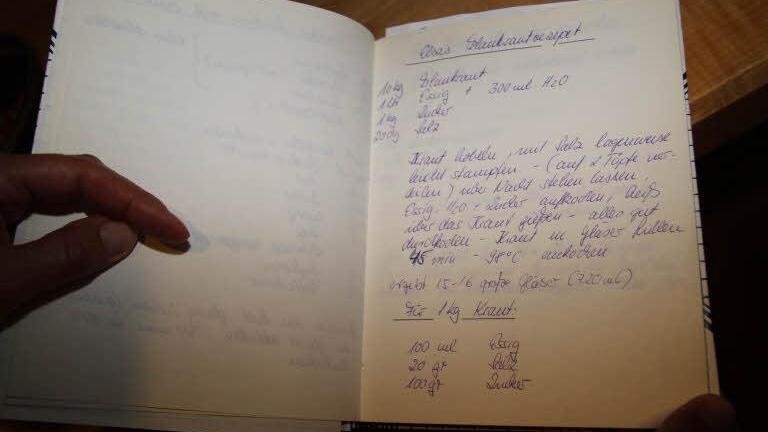 Elsas Blaukrautrezept
10 kg Blaukraut
1 ltr Essig + 300 ml H2O
1 kg Zucker
200g Salz
Kraut hobeln, mit Salz lagenweise
leicht stampfen - (auf 2 Töpfe ver-
teilen) über Nacht stehen lassen,
Essig, H2O + Zucker aufkochen, heiß
über das Kraut gießen - alles gut
durchkochen - Kraut in Gläser füllen
45 min - 98°C - einkochen
ergibt 15-16 große Gläser (720 ml)
Für 1 kg Kraut:
100 ml Essig
20 gr Salz
100 gr Zucker